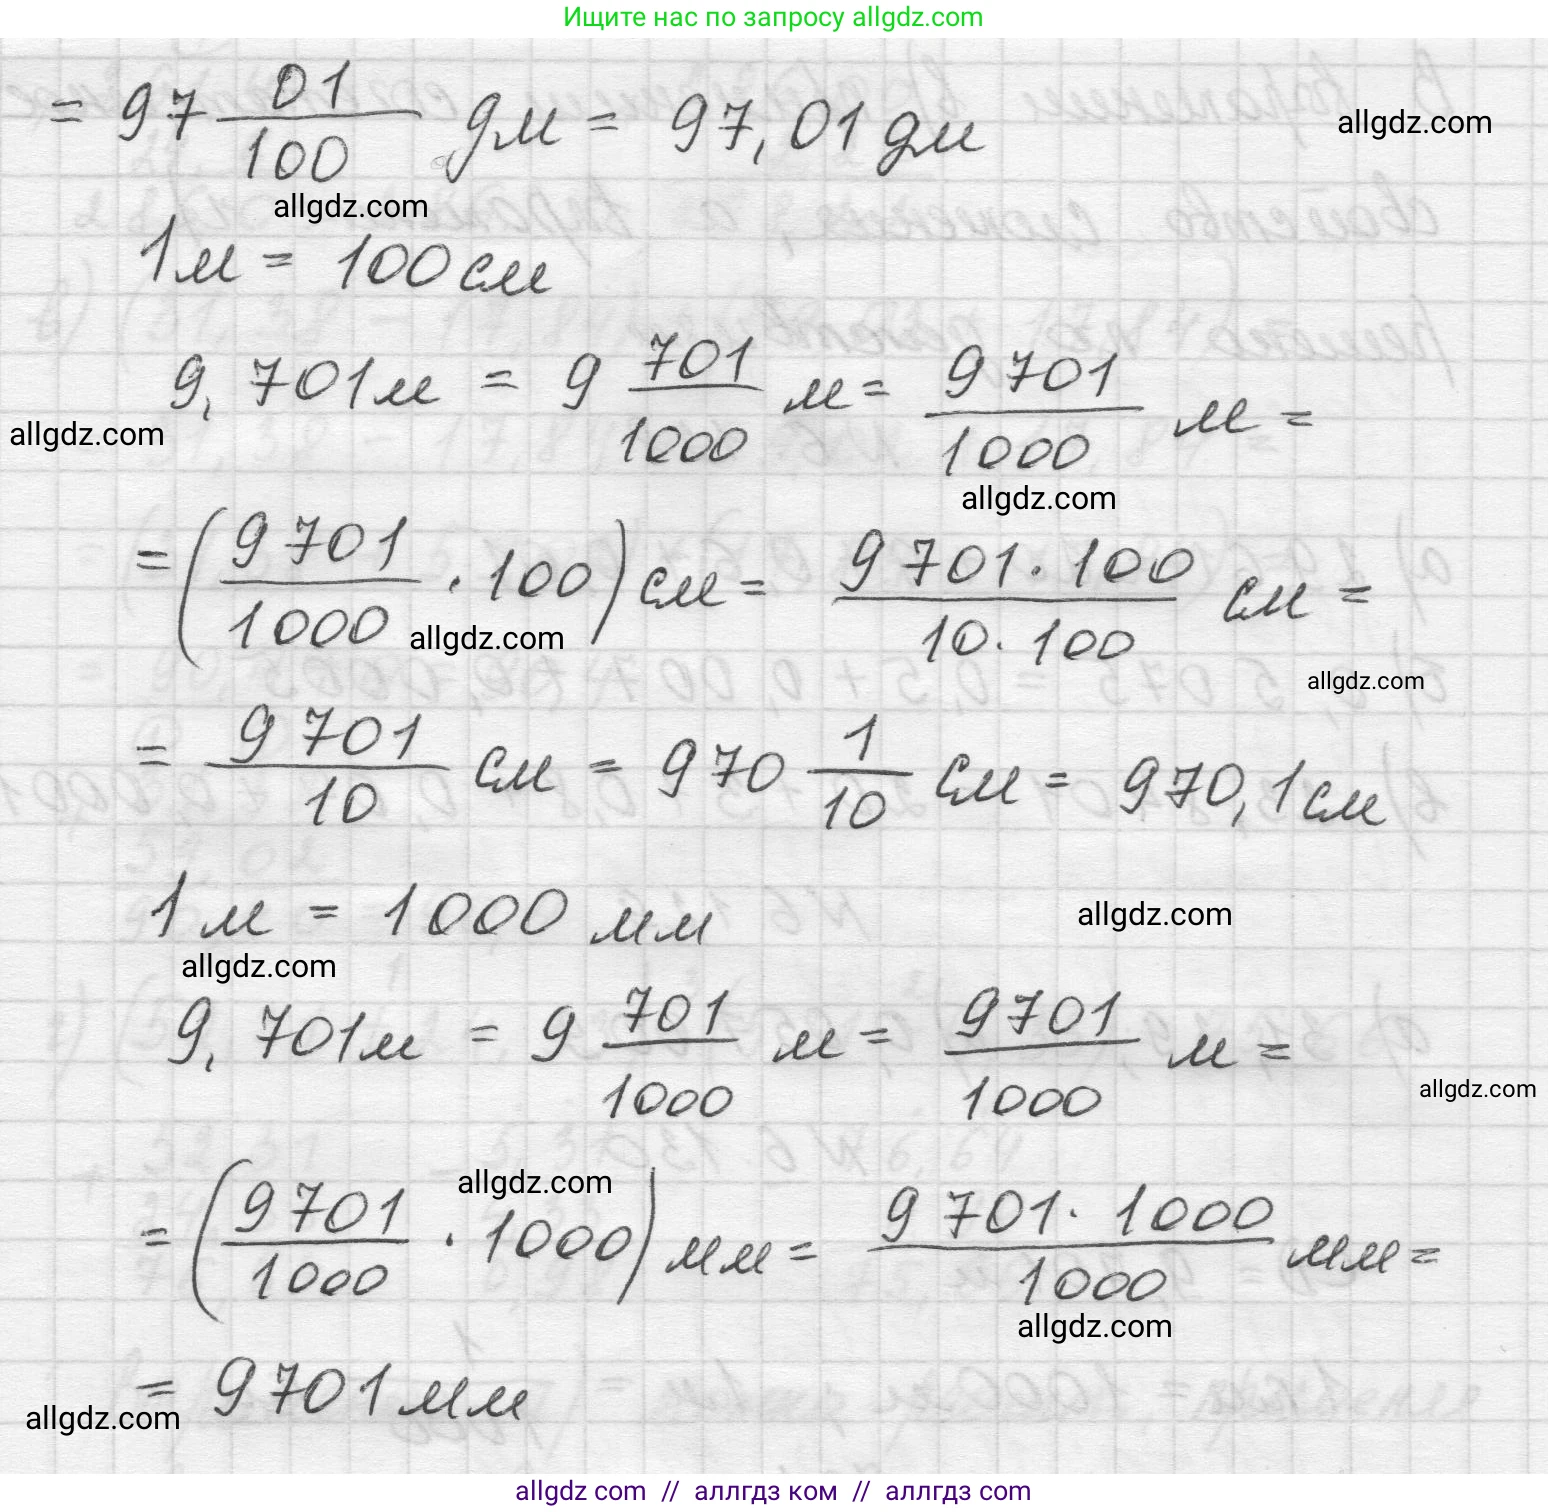 Ищите нас по запросу allgdz.com
= 97 01/100 дм = 97,01 дм
allgdz.com
allgdz.com
1 м = 100 см
9,701 м = 9 701/1000 м = 9701/1000 м =
allgdz.com
allgdz.com
= (9701/1000 · 100) см = 9701 · 100/10 · 100 см =
allgdz.com
allgdz.com
= 9701/10 см = 970 1/10 см = 970,1 см
1 м = 1000 мм
allgdz.com
allgdz.com
9,701 м = 9 701/1000 м = 9701/1000 м =
allgdz.com
allgdz.com
= (9701/1000 · 1000) мм = 9701 · 1000/1000 мм =
allgdz.com
= 9701 мм
allgdz.com
allgdz com // аллгдз ком // аллгдз com